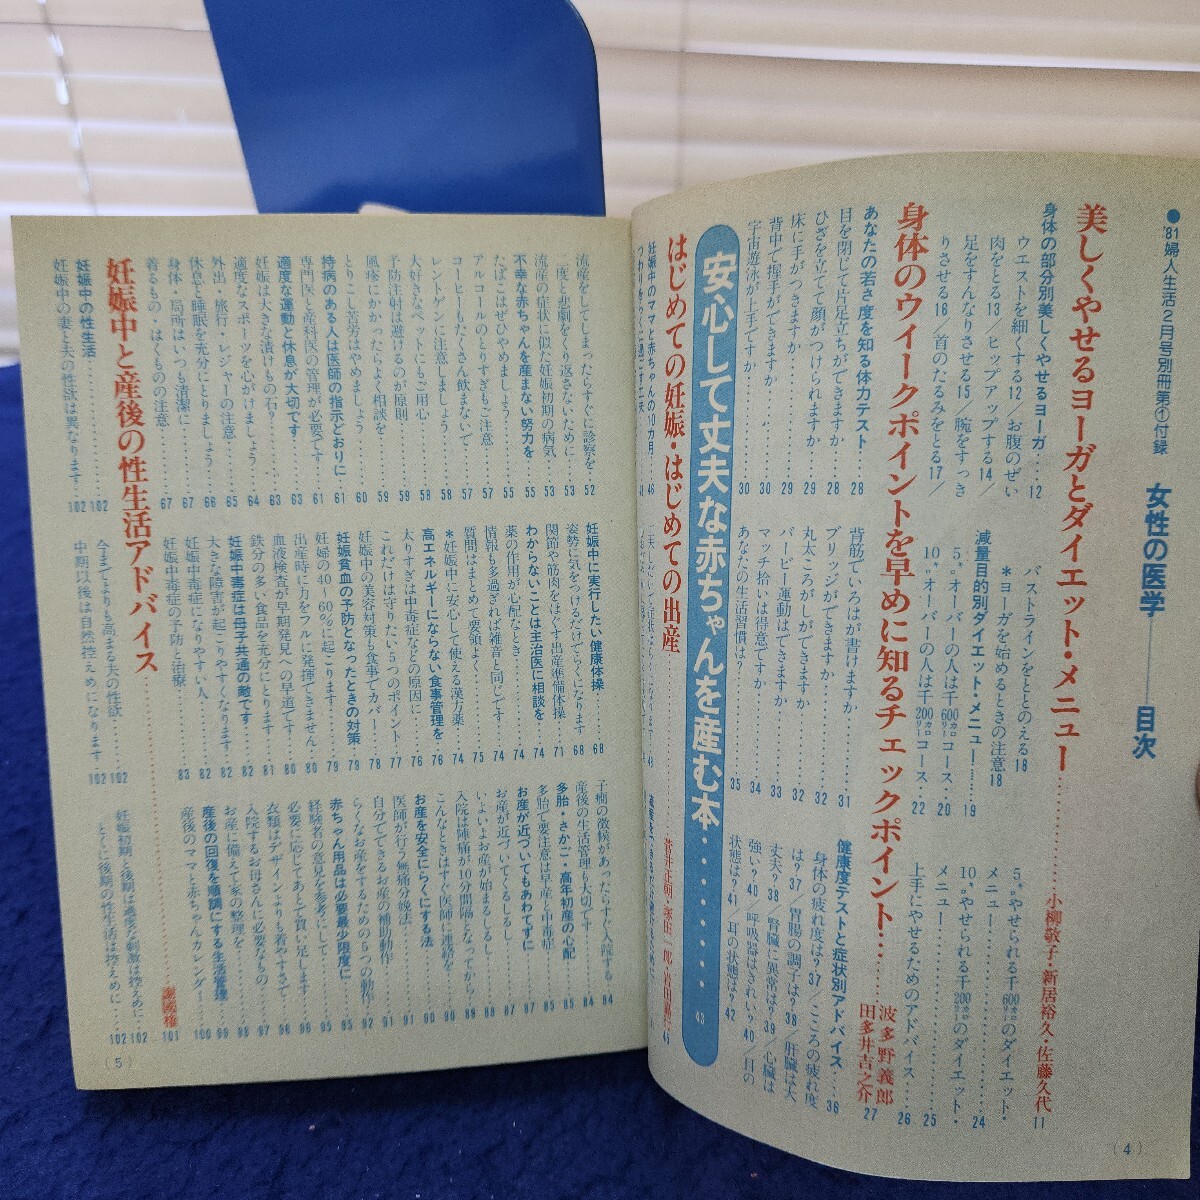 ●'81婦人生活2月号別冊第①付録
女性の医学――目次
美しくやせるヨーガとダイエット・メニュー……小柳敬子・新居裕久・佐藤久代 11
身体の部分別美しくやせるヨーガ…12
ウエストを細くする12／お腹のぜい
肉をとる13／ヒップアップする14／
足をすんなりさせる15／腕をすっき
りさせる16／首のたるみをとる17／
バストラインをととのえる18
＊ヨーガを始めるときの注意18
減量目的別ダイエット・メニュー……19
5㌔オーバーの人は千600㌔カロリーコース…20
10㌔オーバーの人は千200㌔カロリーコース…22
5㌔やせられる千600㌔カロリーのダイエット・
メニュー……24
10㌔やせられる千200㌔カロリーのダイエット・
メニュー……25
上手にやせるためのアドバイス……26
身体のウィークポイントを早めに知るチェックポイント……波多野義郎 田多井吉之介 27
あなたの若さ度を知る体力テスト……28
目を閉じて片足立ちができますか……28
ひざを立てて顔がつけられますか……29
床に手がつきますか……29
背中で握手ができますか……30
宇宙遊泳が上手ですか……30
背筋でいろはが書けますか……31
ブリッジができますか……32
丸太ころがしができますか……32
バーピー運動はできますか……33
マッチ拾いは得意ですか……34
あなたの生活習慣は？……35
健康度テストと症状別アドバイス……36
身体の疲れ度は？37／こころの疲れ度
は？37／胃腸の調子は？38／肝臓は大
丈夫？38／腎臓に異常は？39／心臓は
強い？40／呼吸器はきれい？40／目の
状態は？41／耳の状態は？42
安心して丈夫な赤ちゃんを産む本……43
はじめての妊娠・はじめての出産
妊娠中のママと赤ちゃんの10カ月…46
(4)
流産をしてしまったらすぐに診察を…52
二度と悲劇をくり返さないために…53
流産の症状に似た妊娠初期の病気…53
不幸な赤ちゃんを産まない努力を…55
たばこはぜひやめましょう…55
アルコールのとりすぎもご注意…57
コーヒーもたくさん飲まないで…57
レントゲンに注意しましょう…58
大好きなペットにもご用心…58
予防注射は避けるのが原則…59
風疹にかかったらよく相談を…59
とりこし苦労はやめましょう…60
持病のある人は医師の指示どおりに…61
専門医と産科医の管理が必要です…61
適度な運動と休息が大切です…63
妊娠は大きな漬けもの石？…63
適度なスポーツを心がけましょう…64
外出・旅行・レジャーの注意…65
休息と睡眠を充分にとりましょう…66
身体・局所はいつも清潔に…67
着るもの・はくものの注意…67
妊娠中に実行したい健康体操……68
姿勢に気をつけるだけでらくになります 68
関節や筋肉をほぐす出産準備体操…71
わからないことは主治医に相談を…74
薬の作用が心配なとき…74
情報も多過ぎれば雑音と同じです…74
質問はまとめて要領よく…75
＊妊娠中に安心して使える漢方薬…74
高エネルギーにならない食事管理を…76
太りすぎは中毒症などの原因に…76
これだけは守りたい5つのポイント…77
妊娠中の美容対策も食事でカバー…78
妊娠貧血の予防となったときの対策…79
妊婦の40～60%に起こります…79
出産時に力をフルに発揮できません…80
血液検査が早期発見への早道です…80
鉄分の多い食品を充分にとります…81
妊娠中毒症は母子共通の敵です…82
大きな障害が起こりやすくなります…82
妊娠中毒症になりやすい人…82
妊娠中毒症の予防と治療…83
子癇の徴候があったらすぐ入院する…84
産後の生活管理も大切です…84
多胎・さかご・高年初産の心配…85
多胎で要注意は早産と中毒症…85
お産が近づいてもあわてずに…87
お産が近づいてくるしるし…87
いよいよお産が始まるしるし…89
入院は陣痛が10分間隔となってから…90
こんなときはすぐ医師に連絡を…90
お産を安全にらくにする法…90
医師が行う無痛分娩法…91
自分でできるお産の補助動作…91
らくなお産をするための5つの動作…92
赤ちゃん用品は必要最少限度に…95
経験者の意見を参考にして…95
必要に応じてあとで買い足します…96
衣類はデザインよりも着やすさで…96
入院するお母さんに必要なもの…97
お産に備えて家の整理を…98
産後の回復を順調にする生活管理…99
産後のママと赤ちゃんカレンダー…100
妊娠中と産後の性生活アドバイス……謝国権 101
妊娠中の性生活……102
妊娠中の妻と夫の性欲は異なります…102
今までよりも高まる夫の性欲……102
中期以後は自然控えめになります…102
妊娠初期と後期は過度な刺激は控えめに 102
とくに後期の性生活は控えめに…102
(5)